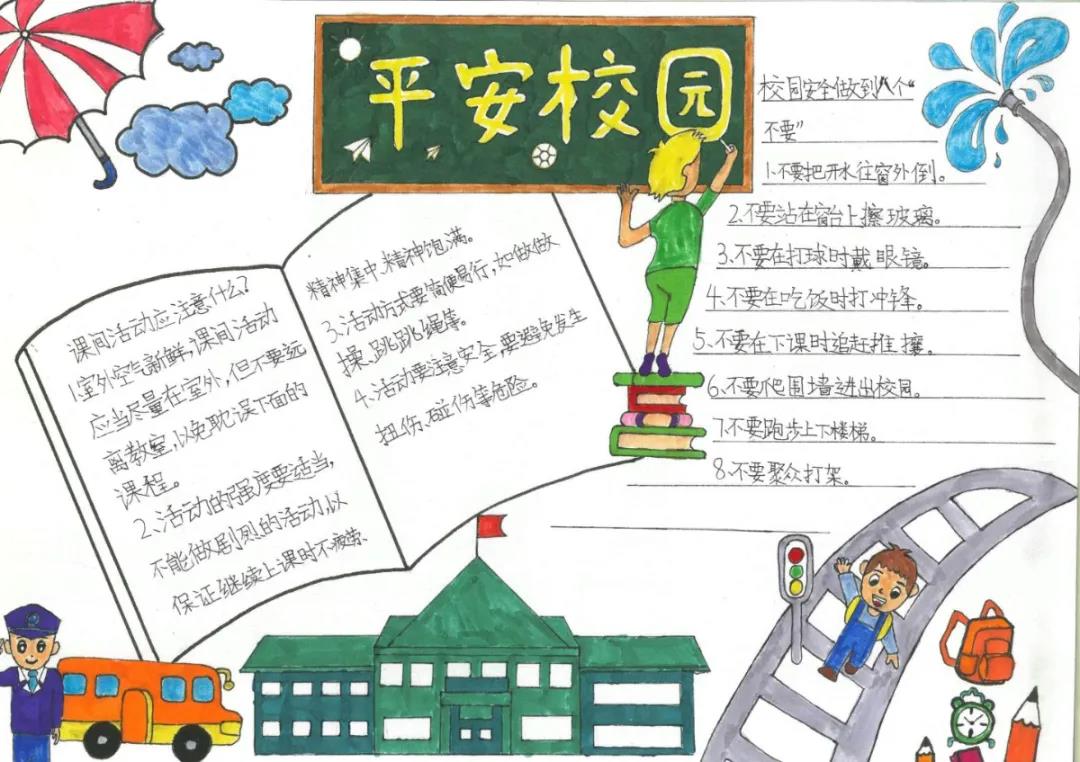 平安校园
课间活动应注意什么?
1.室外空气新鲜,课间活动
应当尽量在室外,但不要远
离教室,以免耽误下面的
课程。
2、活动的强度要适当,
不能做剧烈的活动,以
保证继续上课时不疲劳、
精神集中、精神饱满。
3、活动方式要简便易行,如做做
操、跳跳绳等。
4、活动要注意安全,要避免发生
扭伤、碰伤等危险。
校园安全做到八个“
不要”
1.不要把开水往窗外倒。
2、不要站在窗台上擦玻璃。
3、不要在打球时戴眼镜。
4、不要在吃饭时打冲锋。
5、不要在下课时追赶推攘。
6、不要爬围墙进出校园。
7、不要跑步上下楼梯。
8、不要聚众打架。